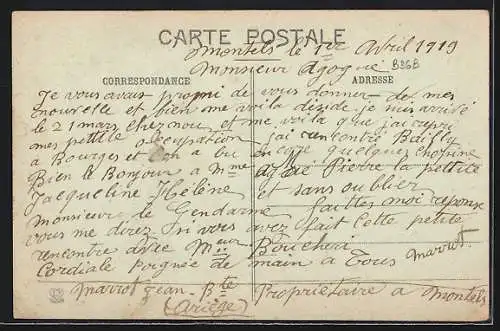 CARTE POSTALE
Montels le 1er Avril 1919
Monsieur Agogué B96B
CORRESPONDANCE ADRESSE
Je vous avais promi de vous donner de mes
nouvelle et bien me voila décide je suis arrivé
le 21 mars chez nou et me voila que j'ai repri
mes petite occupation j'ai rencontré Bailly
a Bourges et on a bu encore quelques chopine
Bien le Bonjour a Mme Pierre la petite
Jacqueline Hélène et sans oublier
Monsieur le Gendarme faittes moi reponse
vous me direz si vous avez fait cette petite
rencontre avec Meur Bouchard
Cordiale Poignée de main a Tous Marrot
Marrot Jean Bte Propriétaire a Montels
(Ariège)